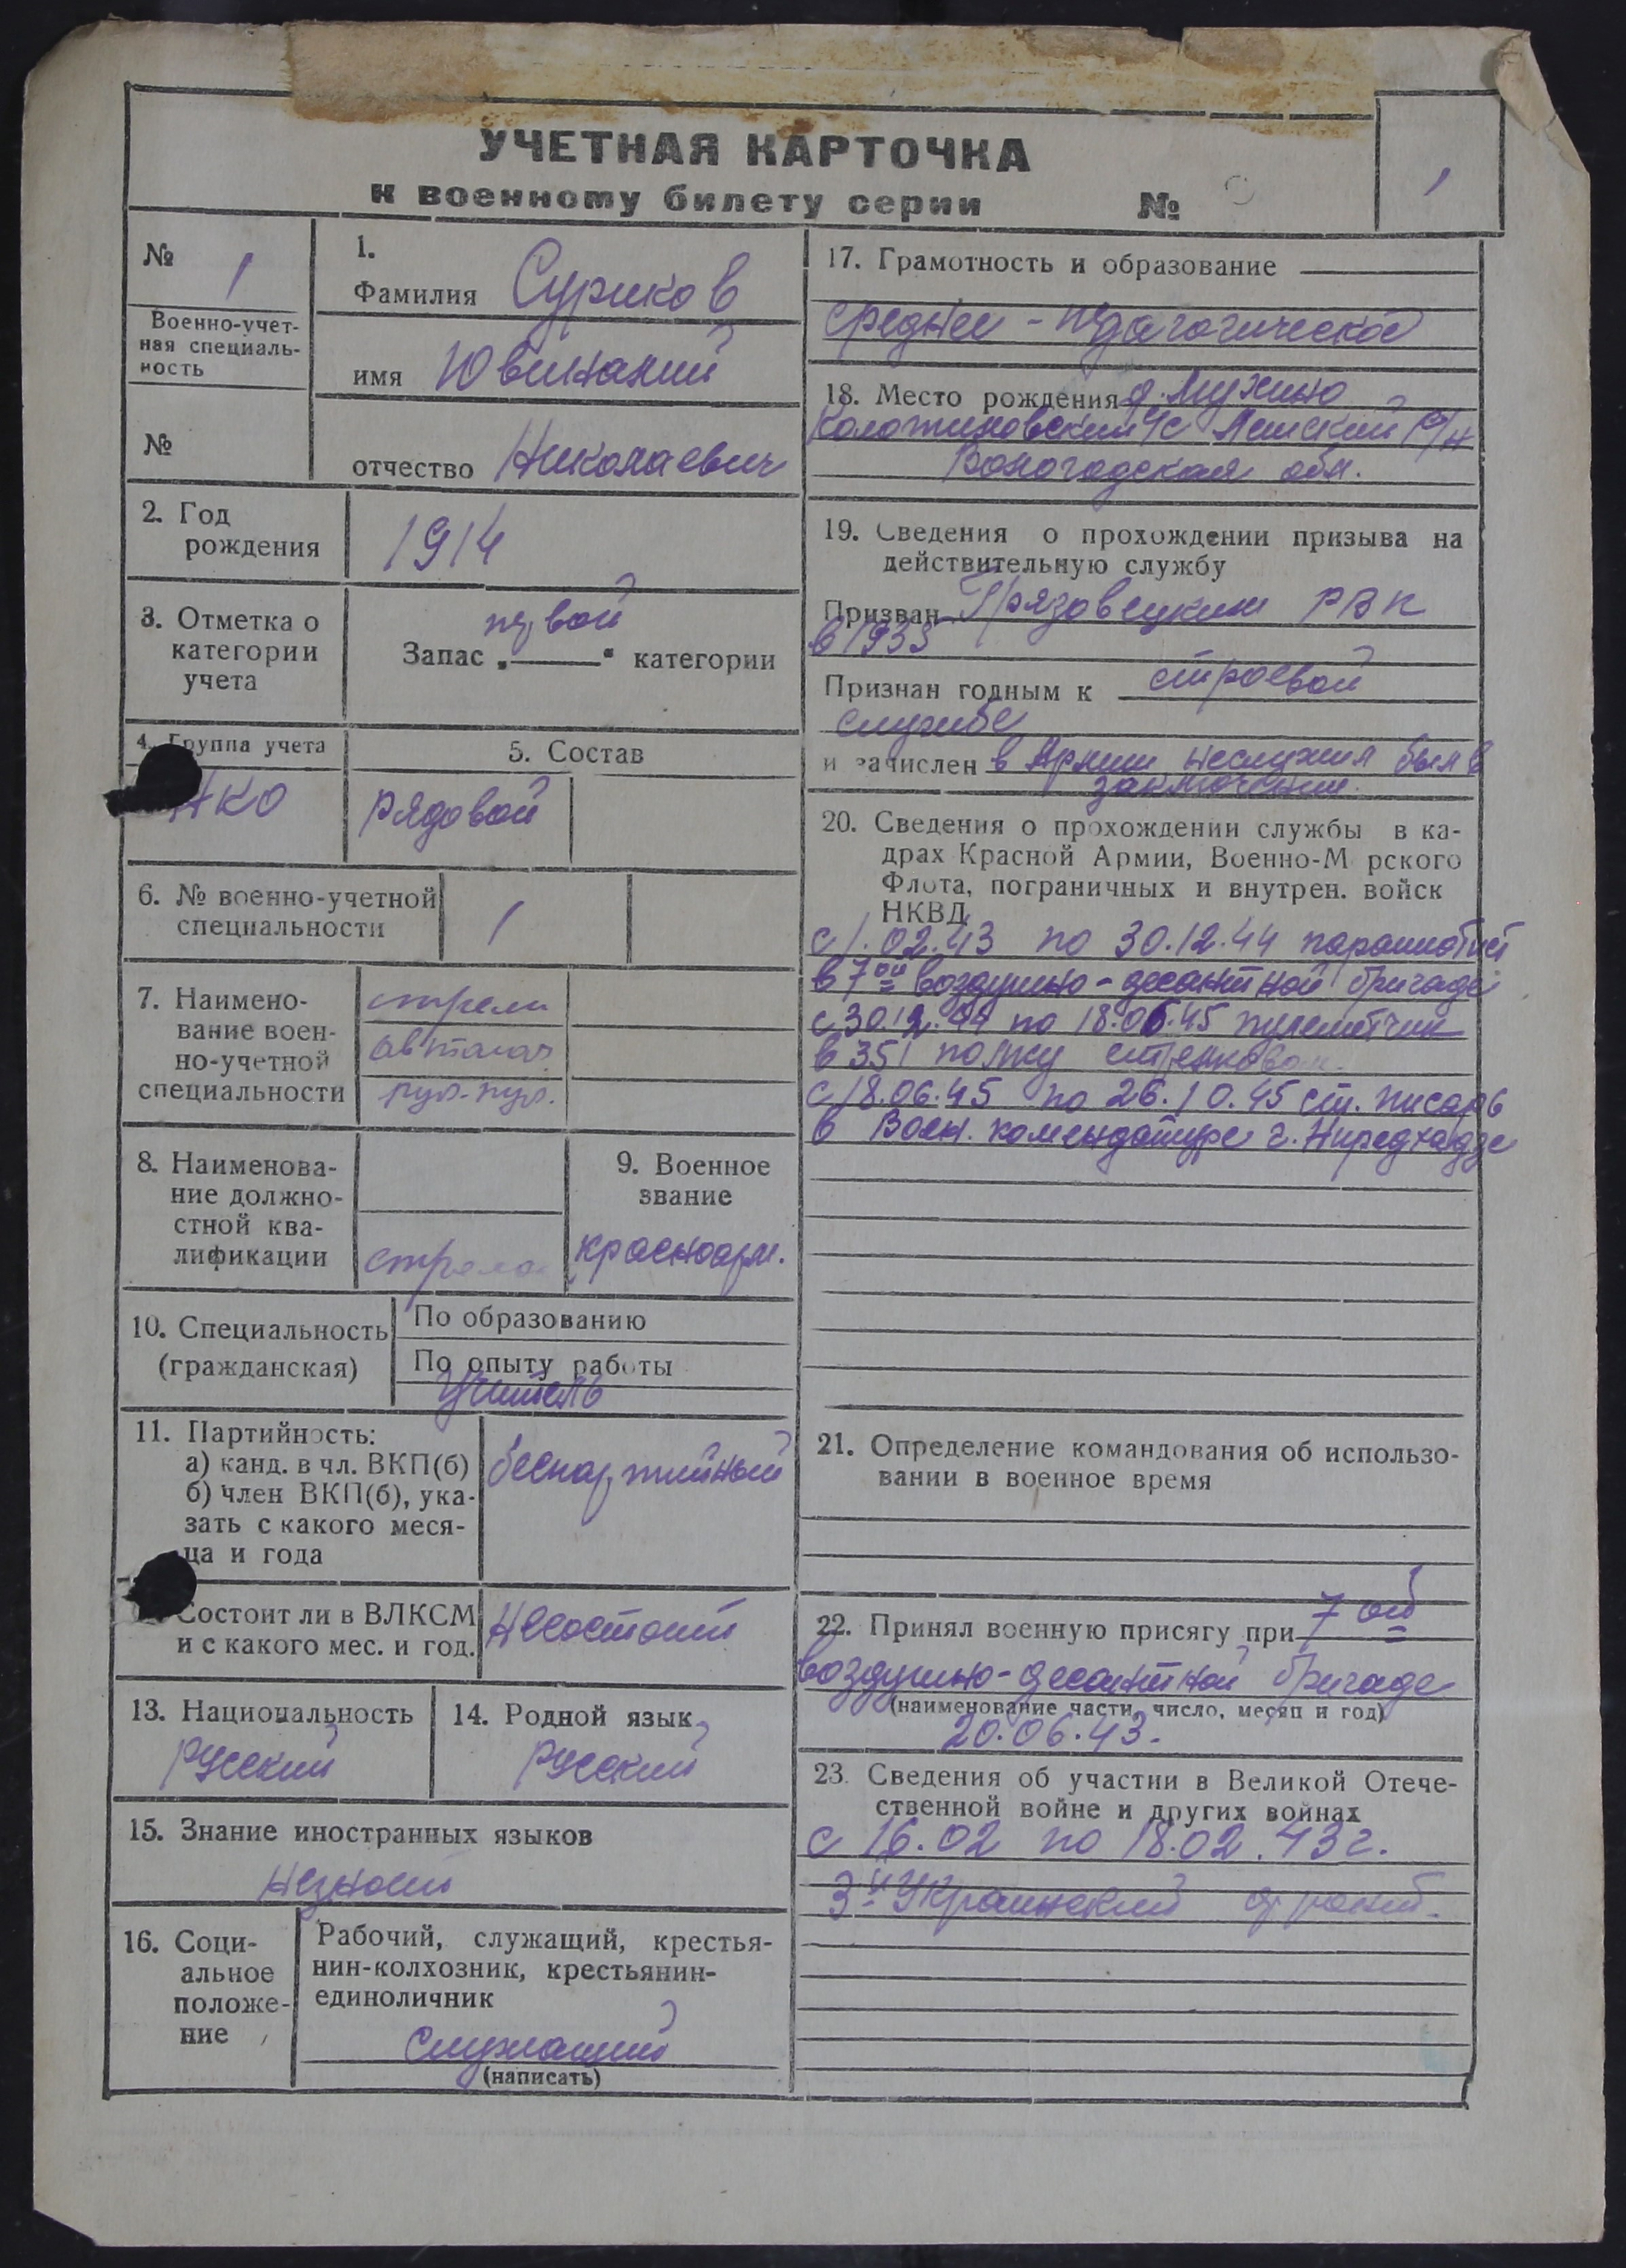 УЧЕТНАЯ КАРТОЧКА
к военному билету серии №
1
№ 1
Военно-учет-
ная специаль-
ность
№
1.
Фамилия Суриков
имя Ювиналий
отчество Николаевич
2. Год
рождения
1914
3. Отметка о
категории
учета
первой
Запас „ “ категории
4. Группа учета
НКО
5. Состав
рядовой
6. № военно-учетной
специальности
1
7. Наимено-
вание воен-
но-учетной
специальности
стрелк
автомат
руч.-пул.
8. Наименова-
ние должно-
стной ква-
лификации
стрелок
9. Военное
звание
красноарм.
10. Специальность
(гражданская)
По образованию
По опыту работы
Учитель
11. Партийность:
а) канд. в чл. ВКП(б)
б) член ВКП(б), ука-
зать с какого меся-
ца и года
беспартийный
Состоит ли в ВЛКСМ
и с какого мес. и год.
Несостоит
13. Национальность
Русский
14. Родной язык
Русский
15. Знание иностранных языков
незнает
16. Соци-
альное
положе-
ние
Рабочий, служащий, крестья-
нин-колхозник, крестьянин-
единоличник
Служащий
(написать)
17. Грамотность и образование
среднее - педагогическое
18. Место рождения д. Мухино
с/с р/н
Вологодская обл.
19. Сведения о прохождении призыва на
действительную службу
Призван Грязовецким РВК
в 1935
Признан годным к строевой
службе
и зачислен в Армии неслужил был в
заключении.
20. Сведения о прохождении службы в ка-
драх Красной Армии, Военно-М рского
Флота, пограничных и внутрен. войск
НКВД
с 1.02.43 по 30.12.44 парашютист
в 7ой воздушно-десантной бригаде
с 30.12.44 по 18.06.45 пулеметчик
в 351 полку стрелковом.
с 18.06.45 по 26.10.45 ст. писарь
в Воен. комендатуре г. Ниредхадзе
21. Определение командования об использо-
вании в военное время
22. Принял военную присягу при 7 ой
воздушно-десантной бригаде
(наименование части, число, месяц и год)
20.06.43.
23. Сведения об участии в Великой Отече-
ственной войне и других войнах
с 16.02 по 18.02.43 г.
3й Украинский фронт.